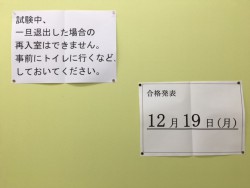 試験中、
一旦退出した場合の
再入室はできません。
事前にトイレに行くなど、
しておいてください。
合格発表
12月19日(月)